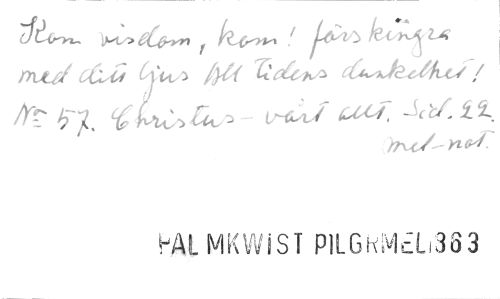 Kom visdom, kom! förskingra
med ditt ljus All tidens dunkelhet!
No 57. Christus - vårt allt. Sid. 22.
met-not.
PALMKWIST PILGRMEL 1363